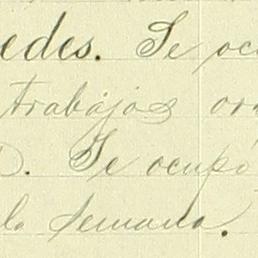 edes. Se oc
trabajos or
). Se ocupó
la semana.